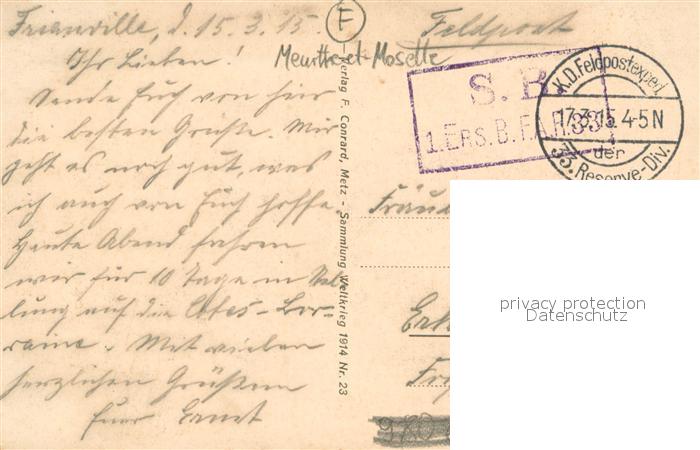 Friauville, d. 15.3.15.
Ihr Lieben!
Sende Euch von hier
die besten Grüße. Mir
geht es noch gut, was
ich auch von Euch hoffe.
Heute Abend fahren
wir für 10 Tage in Stel-
lung auf die Côtes-Lor-
raine. Mit vielen
herzlichen Grüßen
Euer
E
Meurthe-et-Moselle
Feldpost
S. B.
1. Ers. B. F.A.R. 33
K.D. Feldpostexped.
17.3.15. 4-5N
der
33. Reserve-Div.
Verlag F. Conrard, Metz - Sammlung Weltkrieg 1914 Nr. 23
privacy protection
Datenschutz